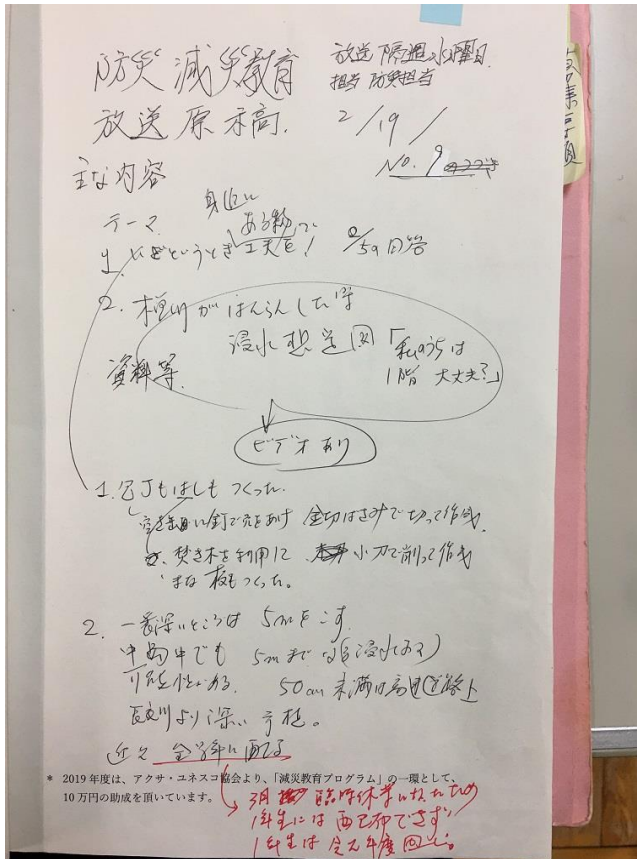 防災減災教育
放送原稿.
放送 隔週水曜日.
担当 防災担当
2/19/
No. 9
主な内容
身近に
テーマ ある物で
1. いざというとき 工夫を! 2/5の回答
2. がはんらんした時
浸水想定図 「私のうちは
資料等. 1階 大丈夫?」
ビデオあり
1. 包丁もはしもつくった.
空き缶に釘で穴をあけ 金切はさみで切って作成.
焚き木を利用して 小刀で削って作成
まな板もつくった。
2. 一番深いところは 5mをこす.
中島中でも 5mまで(浸水する)
可能性がある. 50cm未満は
より深い予想。
近々 全学年に配る
* 2019年度は、アクサ・ユネスコ協会より、「減災教育プログラム」の一環として、
10万円の助成を頂いています。
3月 臨時休業に入ったため
1年生には配布できず
1年生は令元年度